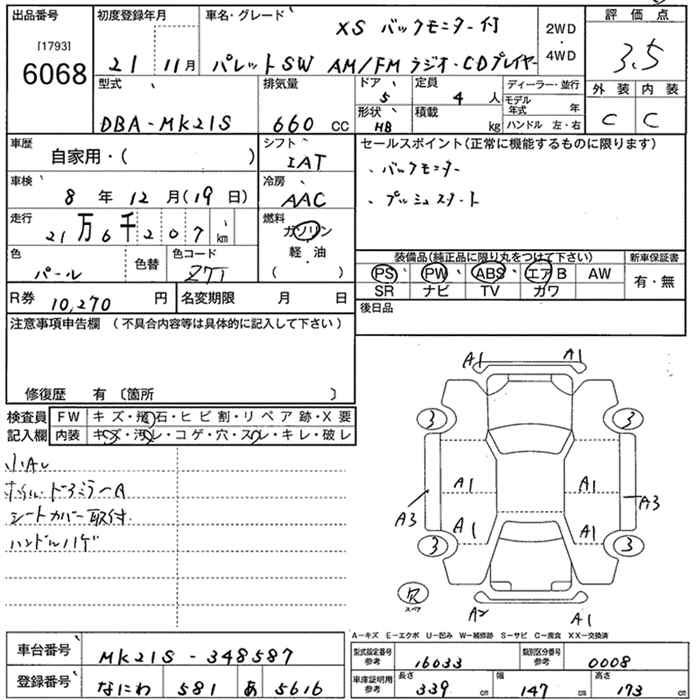 出品番号 初度登録年月 車名・グレード XS バックモニター付 2WD・4WD 評価点
[1793]
6068 21 11月 パレットSW AM/FM ラジオ・CDプレイヤー 3.5
型式 DBA-MK21S 排気量 660 CC ドア 5 定員 4人 ディーラー・並行 外装 内装
形状 HB 積載 kg モデル年式 年 ハンドル 左・右 C C
車歴 自家用・( ) シフト IAT セールスポイント(正常に機能するものに限ります)
車検 8年12月(19日) 冷房 AAC ・バックモニター
・プッシュスタート
走行 21万6千207km 燃料 ガソリン
軽・油
( )
色 パール 色替 色コード Z7T 装備品(純品に限り丸をつけて下さい) 新車保証書
PS PW ABS エアB AW 有・無
SR ナビ TV ガワ
R券 10,270円 名変期限 月 日 後日品
注意事項申告欄 (不具合内容等は具体的に記入して下さい)
修復歴 有 〔箇所 〕
検査員 FW キズ・飛石・ヒビ割・リペア跡・X要
記入欄 内装 キズ・汚レ・コゲ・穴・スレ・キレ・破レ
小AU
ホイル・ドアミラーA
シートカバー取付.
ハンドルハゲ
A1 A1
3 3
A1 A1
A3 A3
A1 A1
3 3
欠
スペア
A2 A1
A-キズ E-エクボ U-凹み W-補修跡 S-サビ C-腐食 XX-交換済
車台番号 MK21S-348587 型式指定番号 参考 16033 類別区分番号 参考 0008
登録番号 なにわ 581 あ 5616 車庫証明用 参考 長さ 339cm 幅 147cm 高さ 173cm